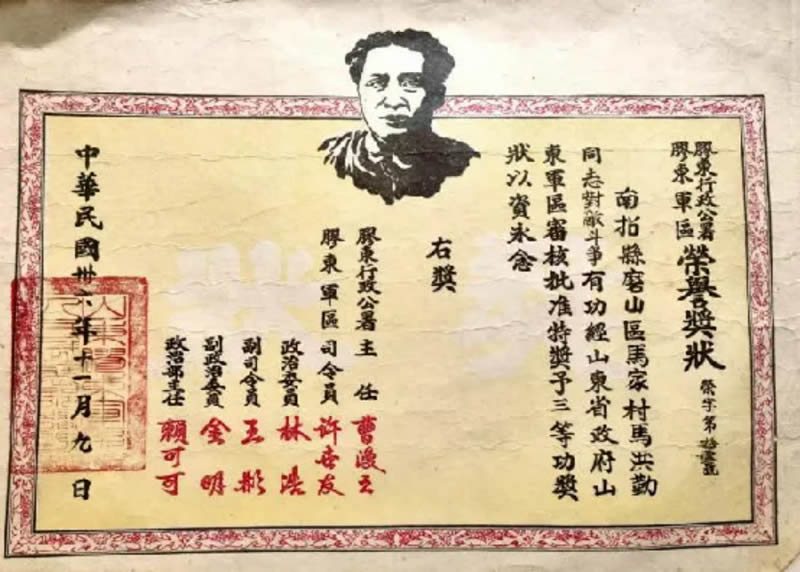 膠東行政公署
膠東軍區
榮譽獎狀
榮字第號
南招縣磨山區馬家村馬洪勤
同志對敵斗爭有功經山東省政府山
東軍區審核批准特獎予三等功獎
狀以資永念
右獎
膠東行政公署主任 曹漫之
膠東軍區司令員 许世友
政治委員 林浩
副司令員 王彬
副政治委員 金明
政治部主任 賴可可
中華民國卅六年十一月九日